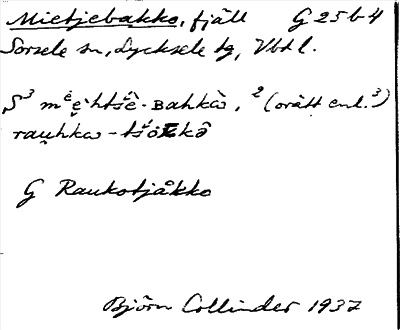 Mietjebakko, fjäll G 25 b 4
Sorsele sn, Lycksele tg, Vbtl.
S³ mᵉe̮·htšē̆-ʙahkà̀, ²(orätt enl. ³)
rau̯hka-tšåkkå
G Raukotjåkko
Björn Collinder 1937